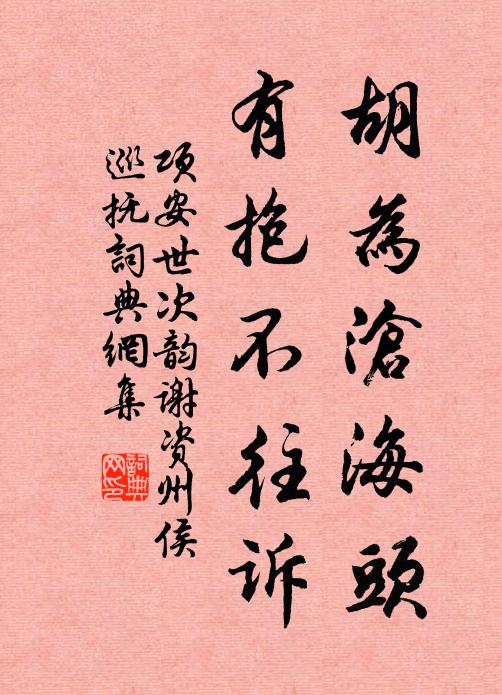 胡為滄海頭
有抱不往訴
项安世次韵谢资州侯
巡抚詞典網集
詞典网印